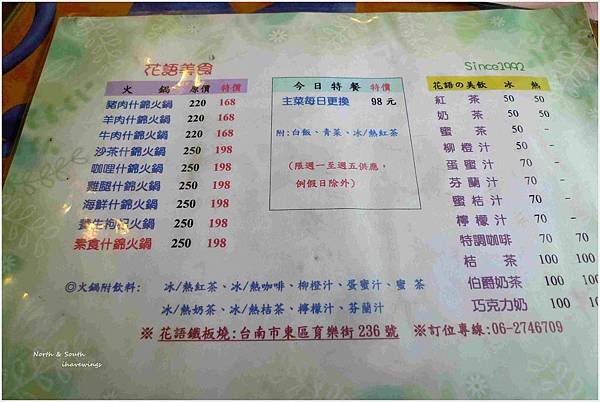 花語美食
火 鍋 原價 特價
豬肉什錦火鍋 220 168
羊肉什錦火鍋 220 168
牛肉什錦火鍋 220 168
沙茶什錦火鍋 250 198
咖哩什錦火鍋 250 198
雞腿什錦火鍋 250 198
海鮮什錦火鍋 250 198
養生枸杞火鍋 250 198
素食什錦火鍋 250 198
今日特餐 特價
主菜每日更換 98 元
附:白飯、青菜、冰/熱紅茶
(限週一至週五供應,
例假日除外)
Since1992
花語の美飲 冰 熱
紅 茶 50 50
奶 茶 50 50
蜜 茶 50 50
柳橙汁 70 -
蛋蜜汁 70 -
芬蘭汁 70 -
蜜桔汁 70 -
檸檬汁 70 -
特調咖啡 70 70
桔 茶 100 100
伯爵奶茶 100 100
巧克力奶 100 100
◎火鍋附飲料: 冰/熱紅茶、冰/熱咖啡、柳橙汁、蛋蜜汁、蜜 茶
冰/熱奶茶、冰/熱桔茶、檸檬汁、芬蘭汁
※花語鐵板燒:台南市東區育樂街236號 ※訂位專線:06-2746709
North & South
ihavewings